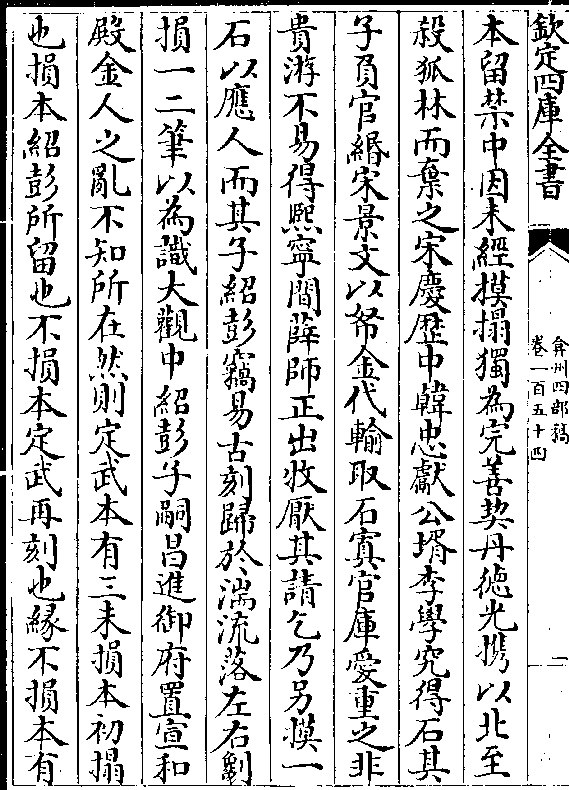 欽定四庫全書
弇州四部稿
卷一百五十四
一
本留禁中因未經摸搨獨為完善契丹德光携以北至
殺狐林而棄之宋慶歷中韓忠獻公壻李學究得石其
子負官緡宋景文以帑金代輸取石寘官庫愛重之非
貴游不易得熈寧間薛師正出牧厭其請乞乃另摸一
石以應人而其子紹彭竊易古刻歸於湍流落左右劖
損一二筆以為識大觀中紹彭子嗣昌進御府置宣和
殿金人之亂不知所在然則定武本有三未損本初搨
也損本紹彭所留也不損本定武再刻也緣不損本有